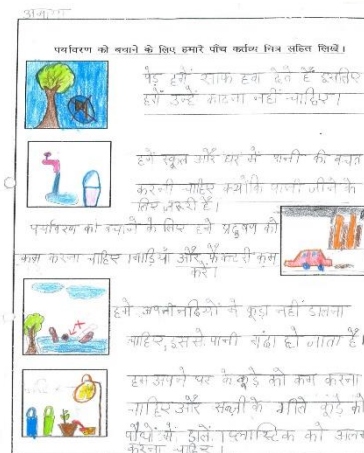 पर्यावरण को बचाने के लिए हमारे पाँच कर्तव्य चित्र सहित लिखें।
पेड़ हमें साफ हवा देते हैं इसलिए
हमें उन्हें काटना नहीं चाहिए।
हमें स्कूल और घर में पानी की बचत
करनी चाहिए क्योंकि पानी जीने के
लिए ज़रूरी है।
पर्यावरण को बचाने के लिए हमें प्रदूषण को
कम करना चाहिए। गाड़ियाँ और फैक्टरी कम
करें।
हमें अपनी नदियों में कूड़ा नहीं डालना
चाहिए, इससे पानी गंदा हो जाता है।
हम अपने घर के कूड़े को कम करना
चाहिए और सब्ज़ी के गीले कूड़े को
पौधों में डालें। प्लास्टिक को अलग
करना चाहिए।